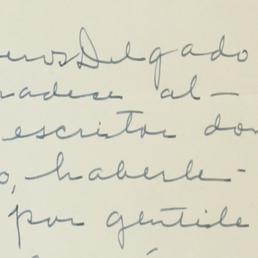 eros Delgado
radece al-
escritor don
o, haberle-
por gentile